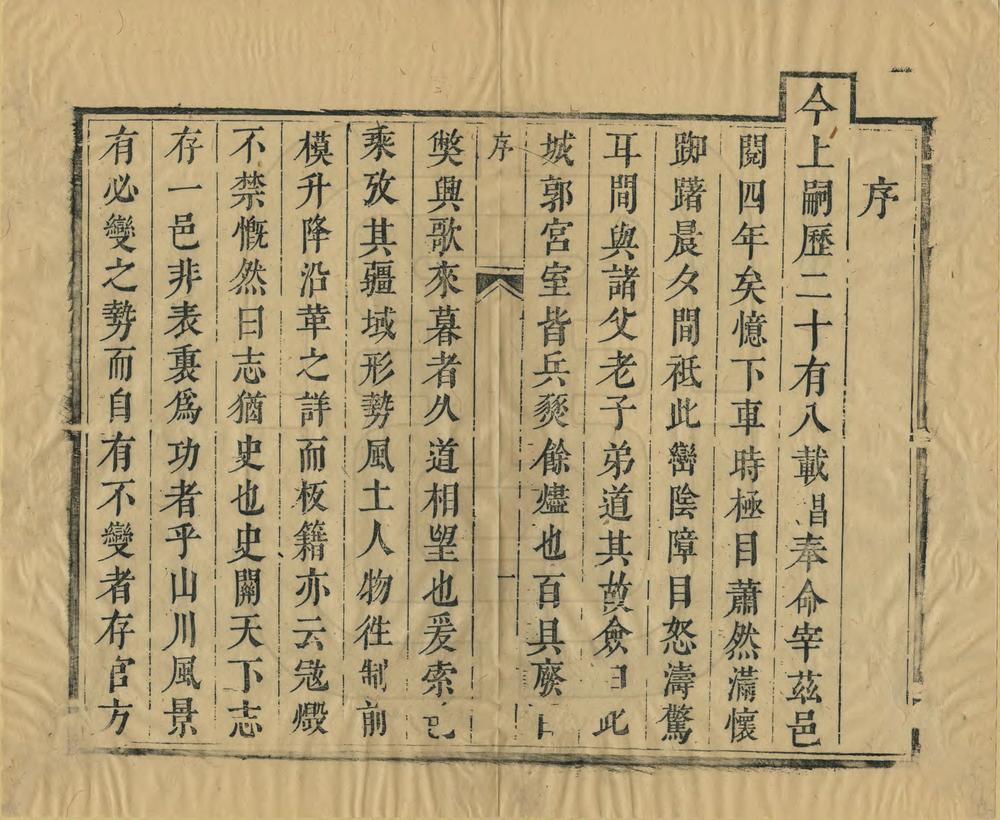 序
今上嗣歷二十有八載昌奉命宰茲邑
閱四年矣憶下車時極目蕭然滿懷
踟躇晨夕間祗此巒陰障目怒濤驚
耳間與諸父老子弟道其故僉曰此
城郭宮室皆兵燹餘燼也百具廢
序
一
獘興歌來暮者久道相望也爰索邑
乘攷其疆域形勢風土人物徃制前
模升降沿革之詳而板籍亦云冦燬
不禁慨然曰志猶史也史關天下志
存一邑非表裏爲功者乎山川風景
有必變之勢而自有不變者存官方